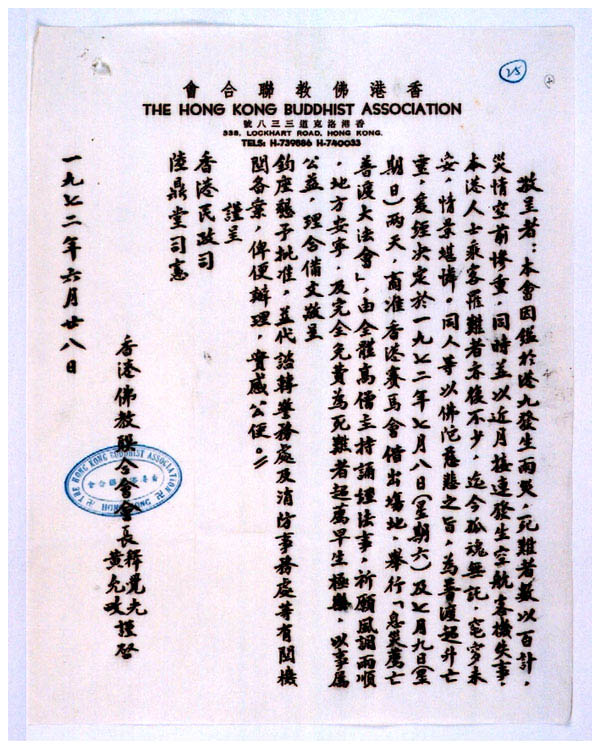 25
香港佛教聯合會
THE HONG KONG BUDDHIST ASSOCIATION
香港洛克道三三八號
338, LOCKHART ROAD, HONG KONG.
TELS: H-739886 H-740033
敬呈者：本會因鑑於港九發生雨災，死難者數以百計，
災情空前慘重，同時並以近月接連發生空航客機失事，
本港人士乘客罹難者亦復不少，迄今孤魂無託，窀穸未
妥，情景堪悼。同人等以佛陀慈悲之旨，為普渡超升亡
靈，爰經決定於一九七二年七月八日（星期六）及七月九日（星
期日）兩天，商准香港賽馬會借出場地，舉行「息災薦亡
普渡大法會」，由全體高僧主持誦經法事，祈願風調雨順
，地方安寧，及完全免費為死難者超薦早生極樂，以事屬
公益，理合備文敬呈
鈞座懇予批准，並代諮轉警務處及消防事務處等有關機
關备案，俾便辦理，實感公便。
謹呈
香港民政司
陸鼎堂司憲
香港佛教聯合會會長釋覺光
黃允畋謹啓
THE HONG KONG BUDDHIST ASSOCIATION
香港佛教聯合會
HONG KONG
一九七二年六月廿八日